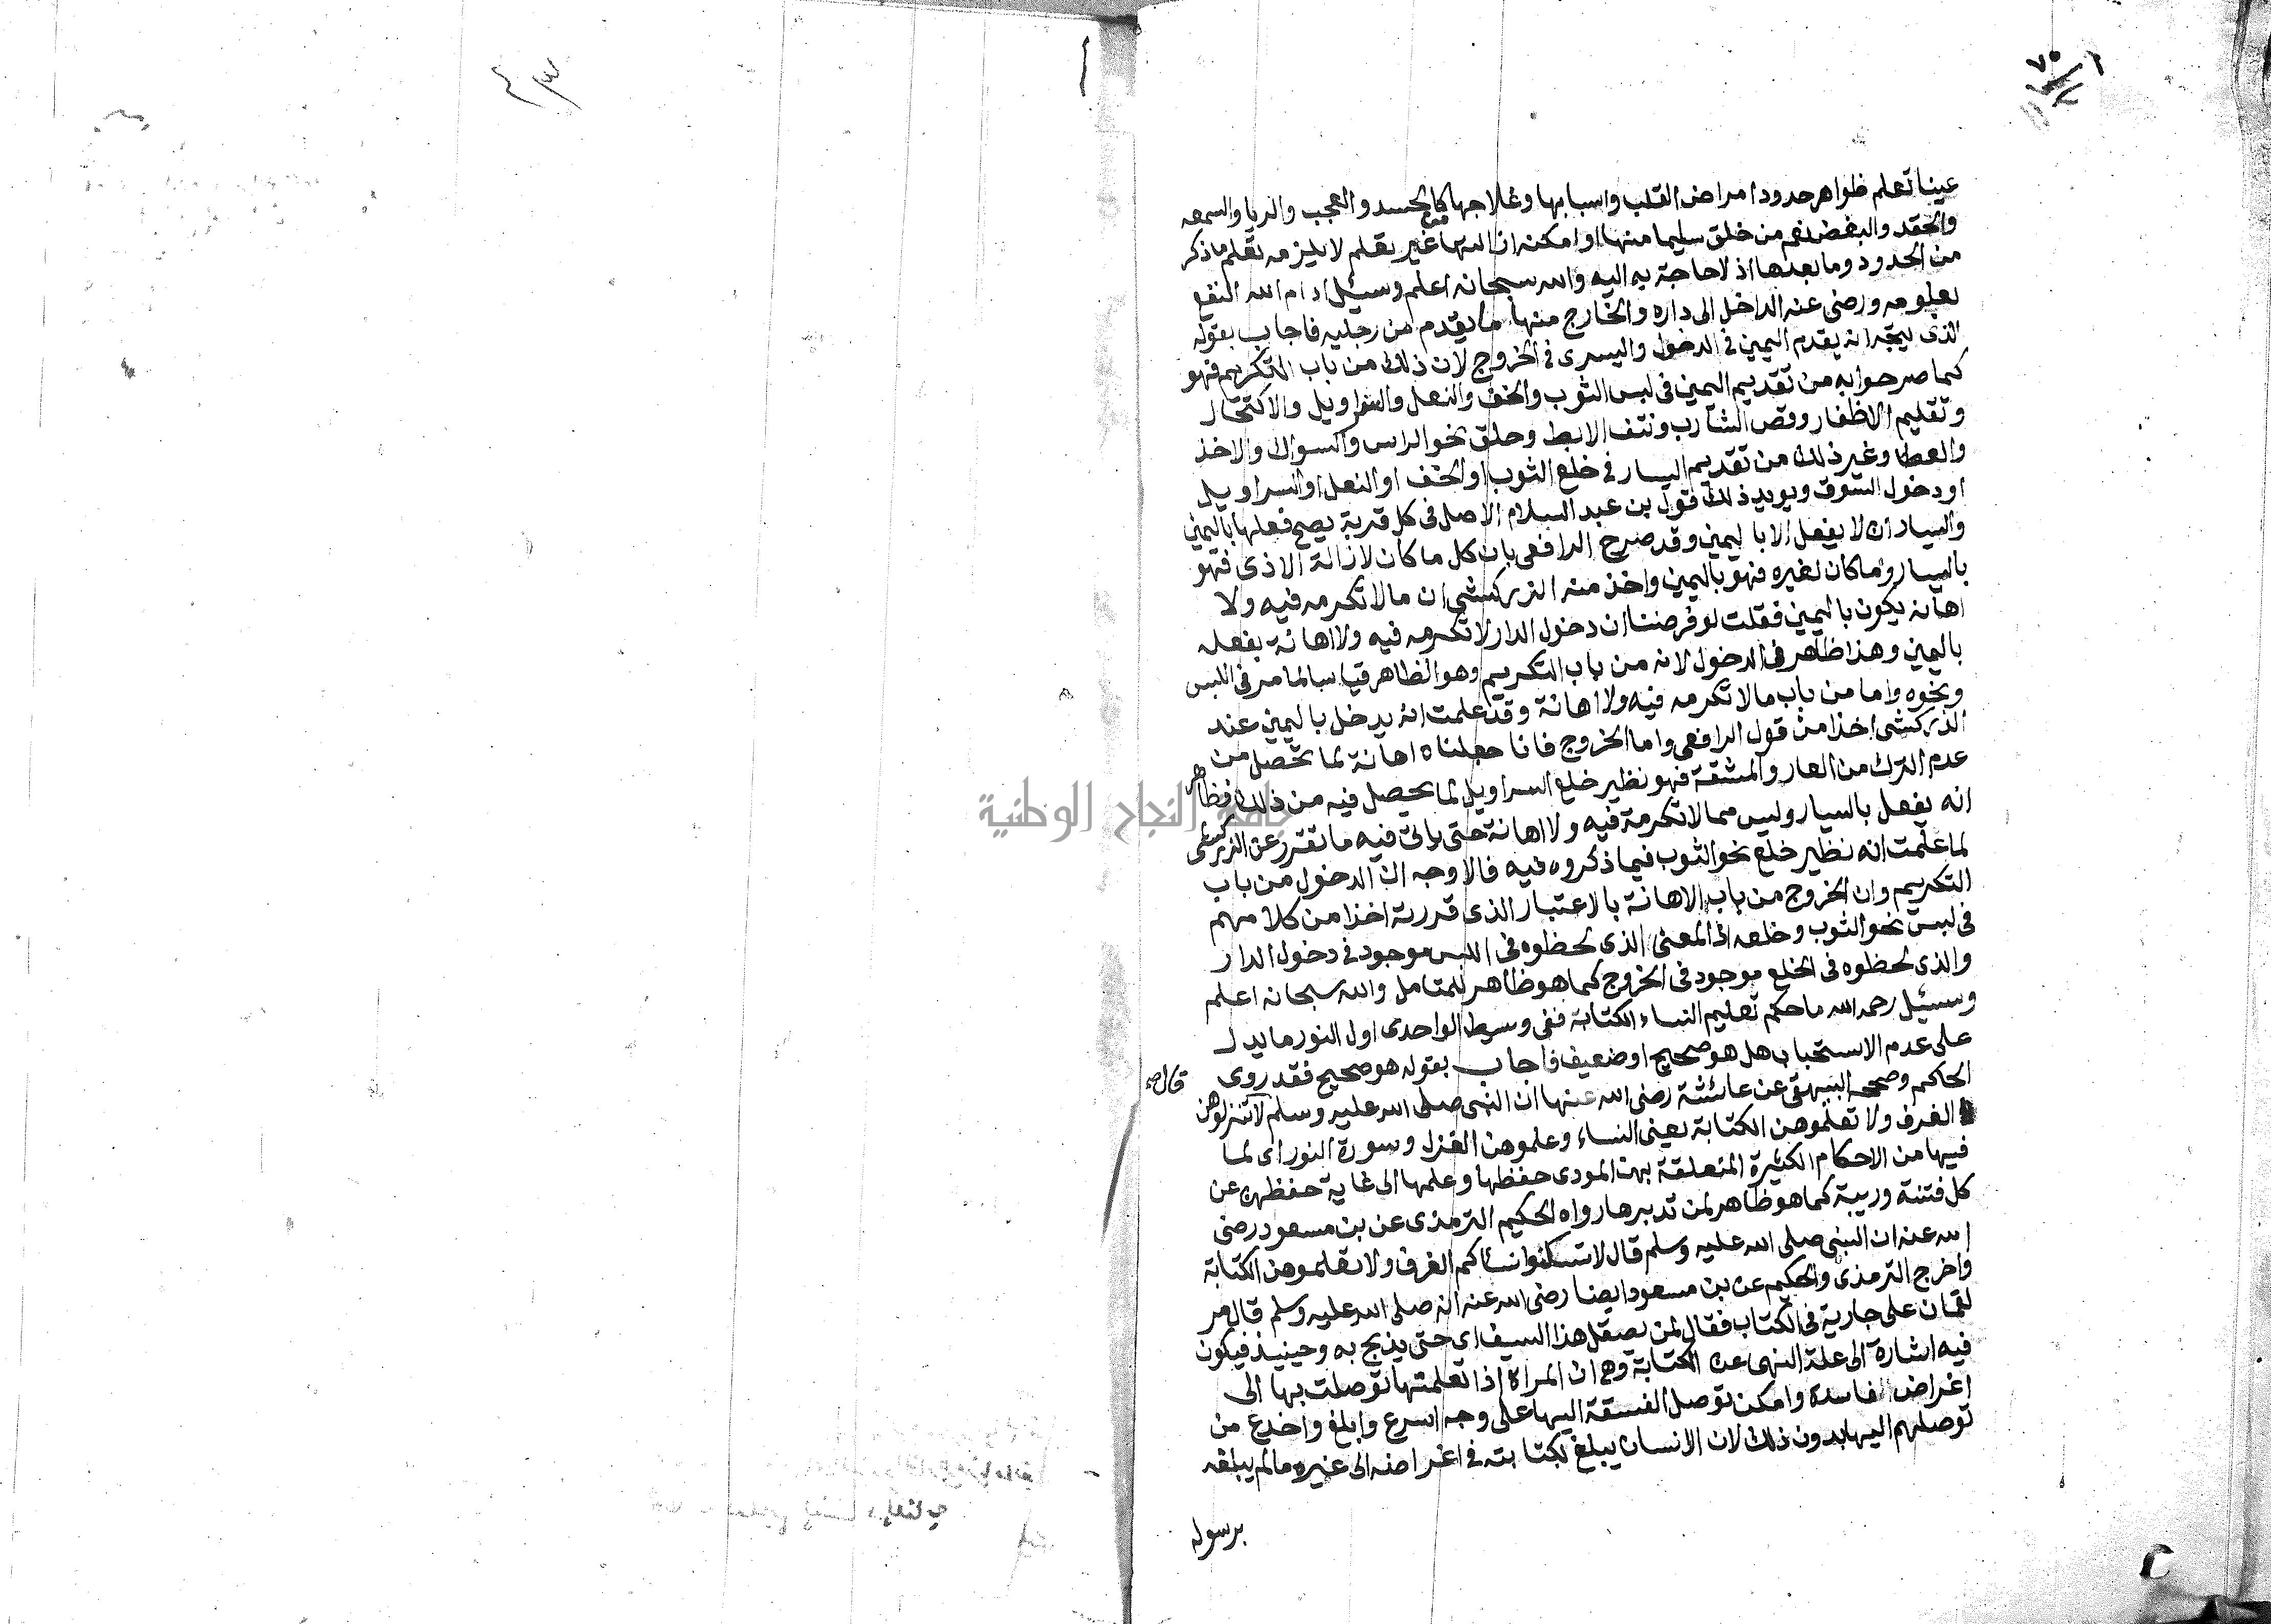 عينا تعلم ظواهر حدود امراض القلب واسبابها وعلاجها كالحسد والعجب والريا والسمعه
والحقد والبغض نعم من خلق سليما منها او امكنه ازالتها بغير تعلم لا يلزمه تعلم ما ذكر
من الحدود وما بعدها اذ لا حاجة به اليه والله سبحانه اعلم وسئل ادام الله النفع
بعلومه ورضى عنه الداخل الى داره والخارج منها ما يقدم من رجليه فاجاب بقوله
الذى يتجه انه يقدم اليمين فى الدخول واليسرى فى الخروج لان ذلك من باب التكريم فهو
كما صرحوا به من تقديم اليمين فى لبس الثوب والخف والنعل والسراويل والاكتحال
وتقليم الاظفار وقص الشارب ونتف الابط وحلق نحو الراس والسواك والاخذ
والعطا وغير ذلك من تقديم اليسار فى خلع الثوب او الخف او النعل او السراويل
او دخول السوق ويويد ذلك قول بن عبد السلام الاصل فى كل قربة يصح فعلها باليمين
واليسار ان لا يفعل الا باليمين وقد صرح الرافعى بان كل ما كان لازالة الاذى فهو
باليسار وما كان لغيره فهو باليمين واخذ منه الزركشى ان ما لا تكرمه فيه ولا
اهانه يكون باليمين فقلت لو فرضنا ان دخول الدار لا تكرمه فيه ولا اهانة يفعله
باليمين وهذا ظاهر فى الدخول لانه من باب التكريم وهو الظاهر قياسا لما مر فى اللبس
ونحوه واما من باب ما لا تكرمه فيه ولا اهانة وقد علمت انه يدخل باليمين عند
الزركشى اخذا من قول الرافعى واما الخروج فانا جعلناه اهانة لما تحصل من
عدم الترك من العار والمشقة فهو نظير خلع السراويل لما يحصل فيه من ذلك فظاهر
انه يفعل باليسار وليس مما لا تكرمة فيه ولا اهانة حتى ياتى فيه ما تقرر عن الزركشى
لما علمت انه نظير خلع نحو الثوب فيما ذكروه فيه فالاوجه ان الدخول من باب
التكريم وان الخروج من باب الاهانة بالاعتبار الذى قررته اخذا من كلامهم
فى لبس نحو الثوب وخلعه اذ المعنى الذى لحظوه فى اللبس موجود فى دخول الدار
والذى لحظوه فى الخلع موجود فى الخروج كما هو ظاهر للمتامل والله سبحانه اعلم
وسئيل رحمه الله ما حكم تعليم النساء الكتابة ففى وسيط الواحدى اول النور ما يدل
على عدم الاستحباب هل هو صحيح او ضعيف فاجاب بقوله هو صحيح فقد روى
الحاكم وصححه البيهقى عن عائشة رضى الله عنها ان النبى صلى الله عليه وسلم لا تنزلوهن
قال
الغرف ولا تعلموهن الكتابة يعنى النساء وعلموهن الغزل وسورة النور اى لما
فيها من الاحكام الكثيرة المتعلقة بهن المودى حفظها وعلمها الى غاية حفظهن عن
كل فتنة وريبة كما هو ظاهر لمن تدبرها رواه الحكيم الترمذى عن بن مسعود رضى
الله عنه ان النبى صلى الله عليه وسلم قال لا تسكنوا نساكم الغرف ولا تعلموهن الكتابة
واخرج الترمذى والحكيم عن بن مسعود ايضا رضى الله عنه انه صلى الله عليه وسلم قال مر
لقمان على جارية فى الكتاب فقال لمن يصقل هذا السيف اى حتى يذبح به وحينيذ فيكون
فيه اشارة الى علة النهى عن الكتابة وهى ان المراة اذا تعلمتها توصلت بها الى
اغراض فاسدة وامكن توصل الفسقة اليها على وجه اسرع وابلغ واخدع من
توصلهم اليها بدون ذلك لان الانسان يبلغ بكتابته فى اغراضه الى غيره ما لم يبلغه
برسوله
جامعة النجاح الوطنية